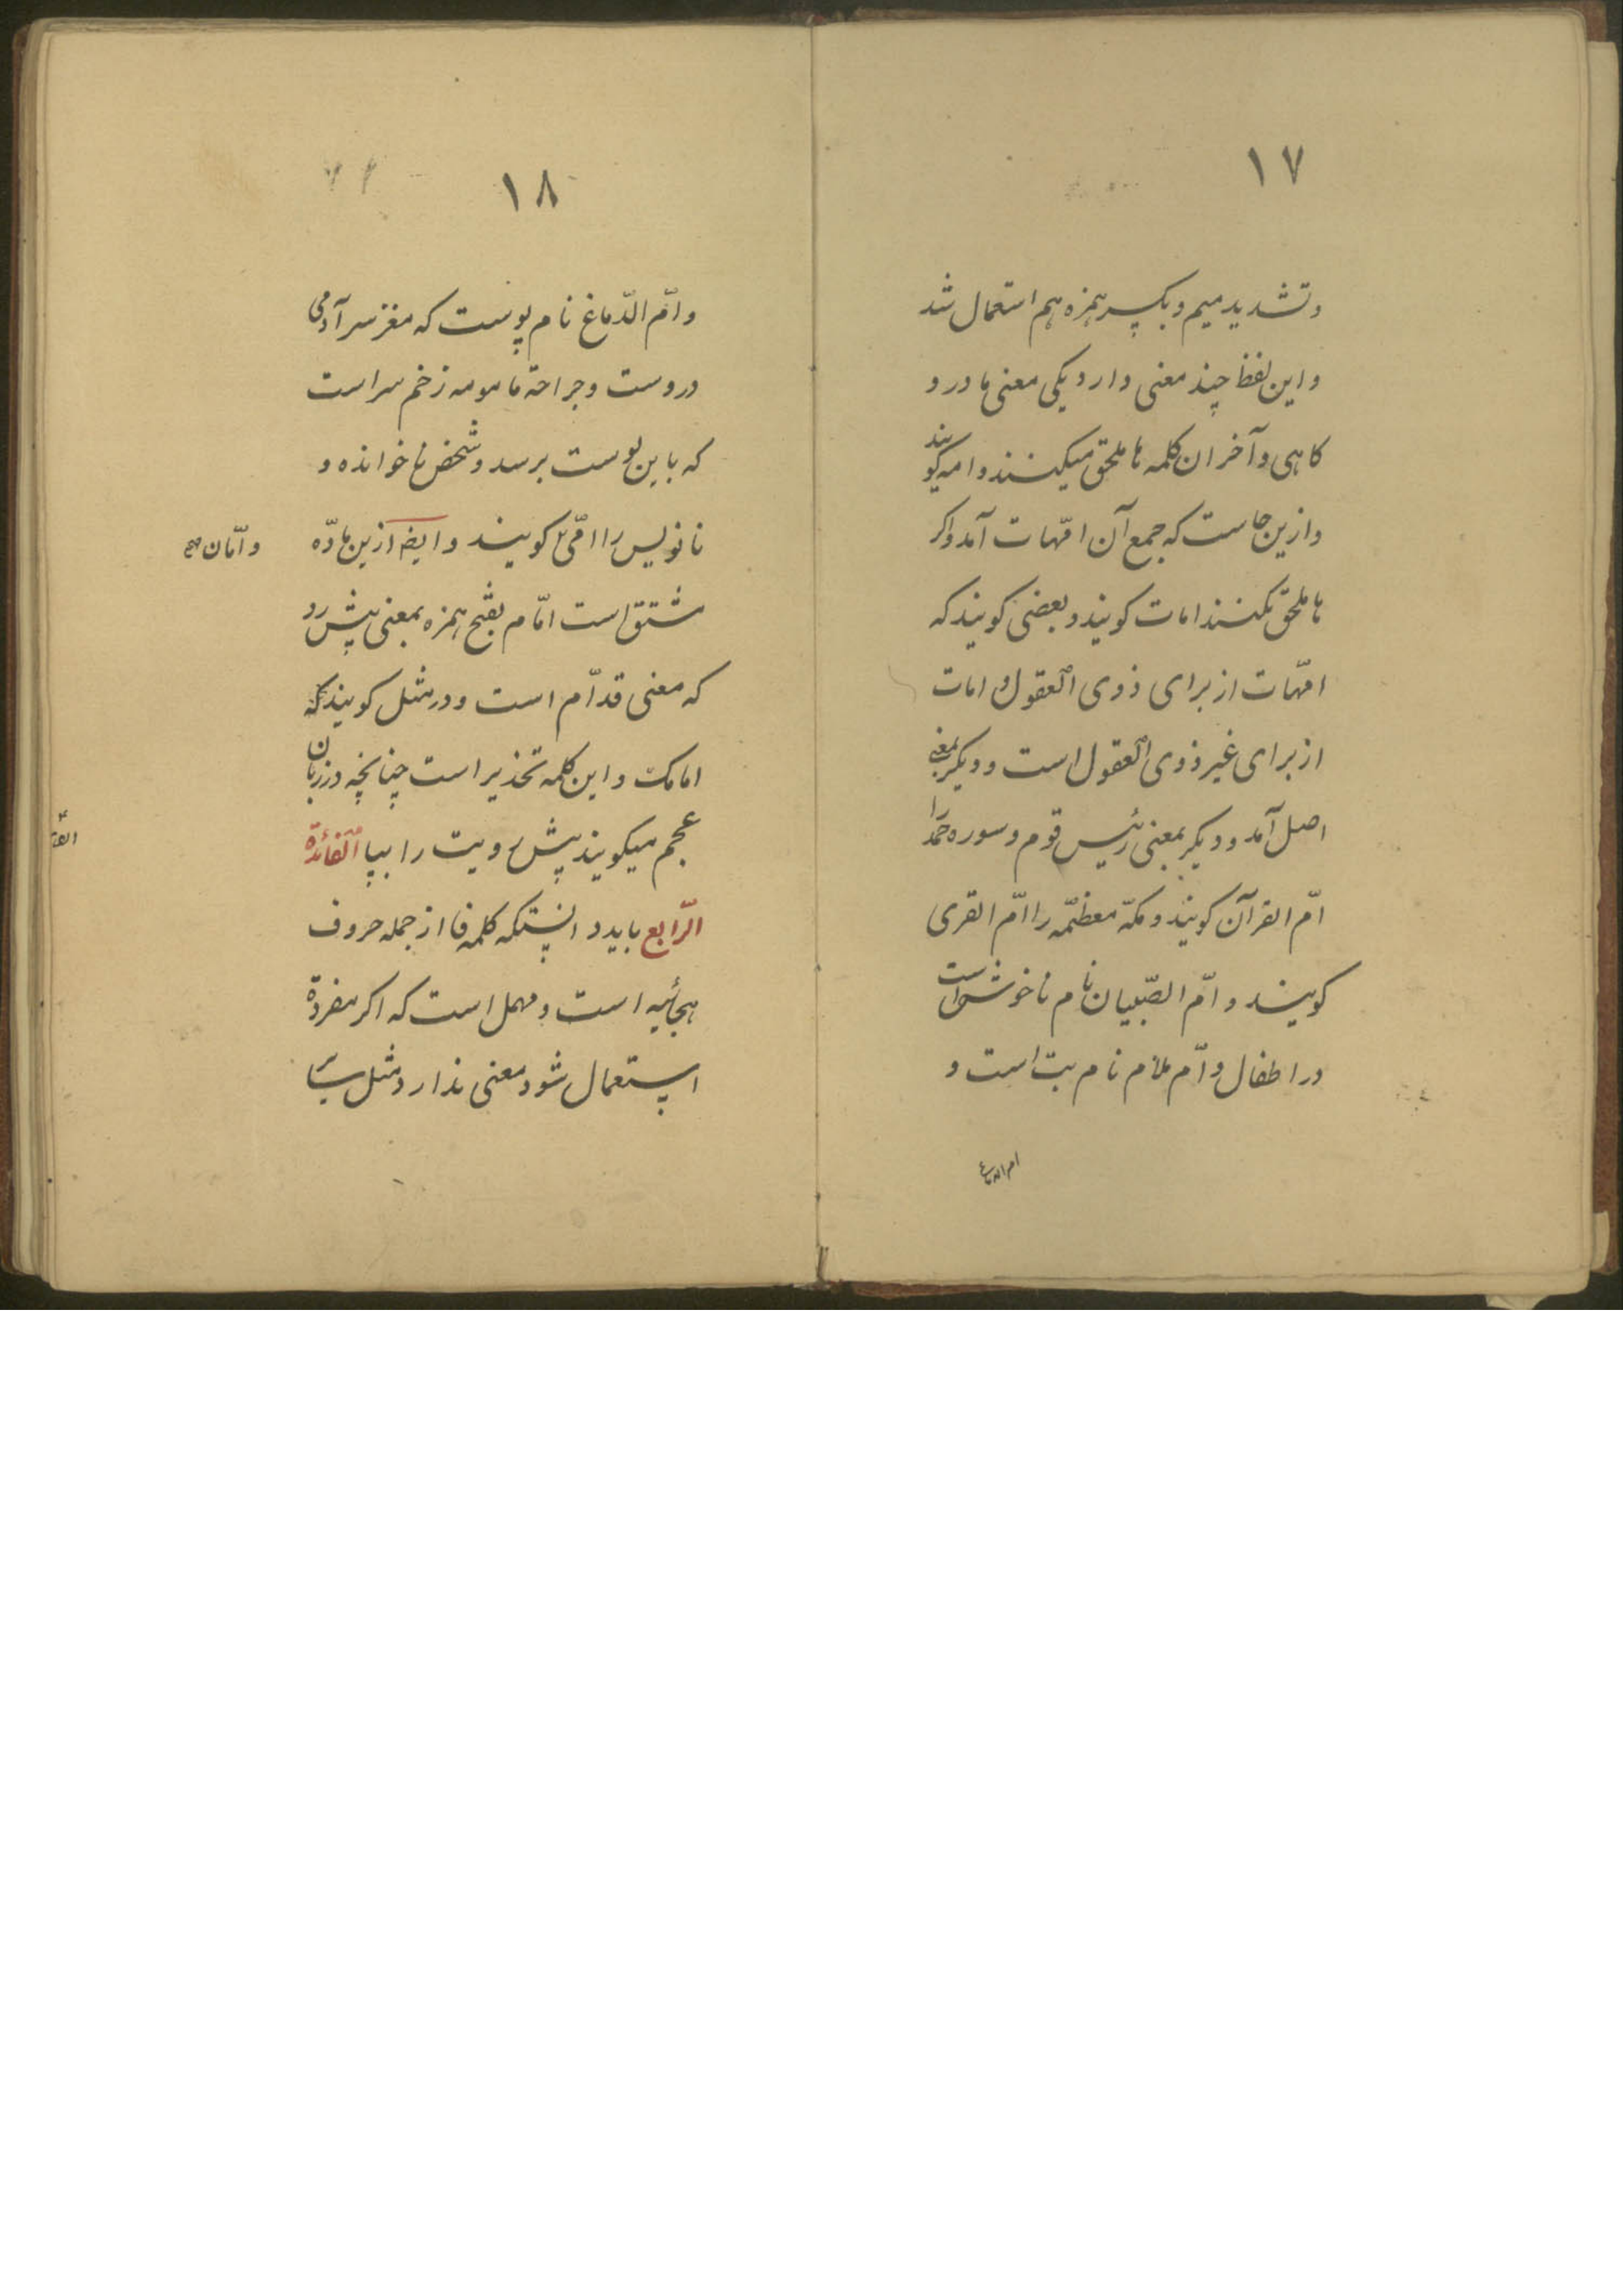 ۱۷
وتشدید میم و بکسر همزه هم استعمال شد
و این لفظ چند معنی دارد یکی معنی مادر و
کاهی در آخر ان کلمه ها ملحق میکنند و امه کویند
و ازین جاست که جمع آن امّهات آمد و اکر
ها ملحق نکنند امات کویند و بعضی کویند که
امّهات از برای ذوی العقول و امات
از برای غیر ذوی العقول است و دیکر بمعنی
اصل آمد و دیکر بمعنی رئیس قوم و سوره حمد را
امّ القرآن کویند و مکّه معظّمه را امّ القری
کویند و امّ الصّبیان نام ناخوشی است
در اطفال و امّ ملام نام تب است و
ام الدماغ
۱۸
و امّ الدّماغ نام پوست که مغز سر آدمی
دروست و جراحة مامومه زخم سر است
که باین پوست برسد و شخص ناخوانده و
نانویس را امّی کویند و ایضا ازین مادّه
و امّان صح
مشتق است امّام بفتح همزه بمعنی پیش رو
که معنی قدّام است و در مثل کویند که
امامک و این کلمه تحذیر است چنانچه در زبان
عجم میکویند پیش رویت را بپا الفائدة
الرّابع باید دانستکه کلمه فا از جمله حروف
هجائیه است و مهمل است که اکر مفردة
استعمال شود معنی ندارد مثل سایر